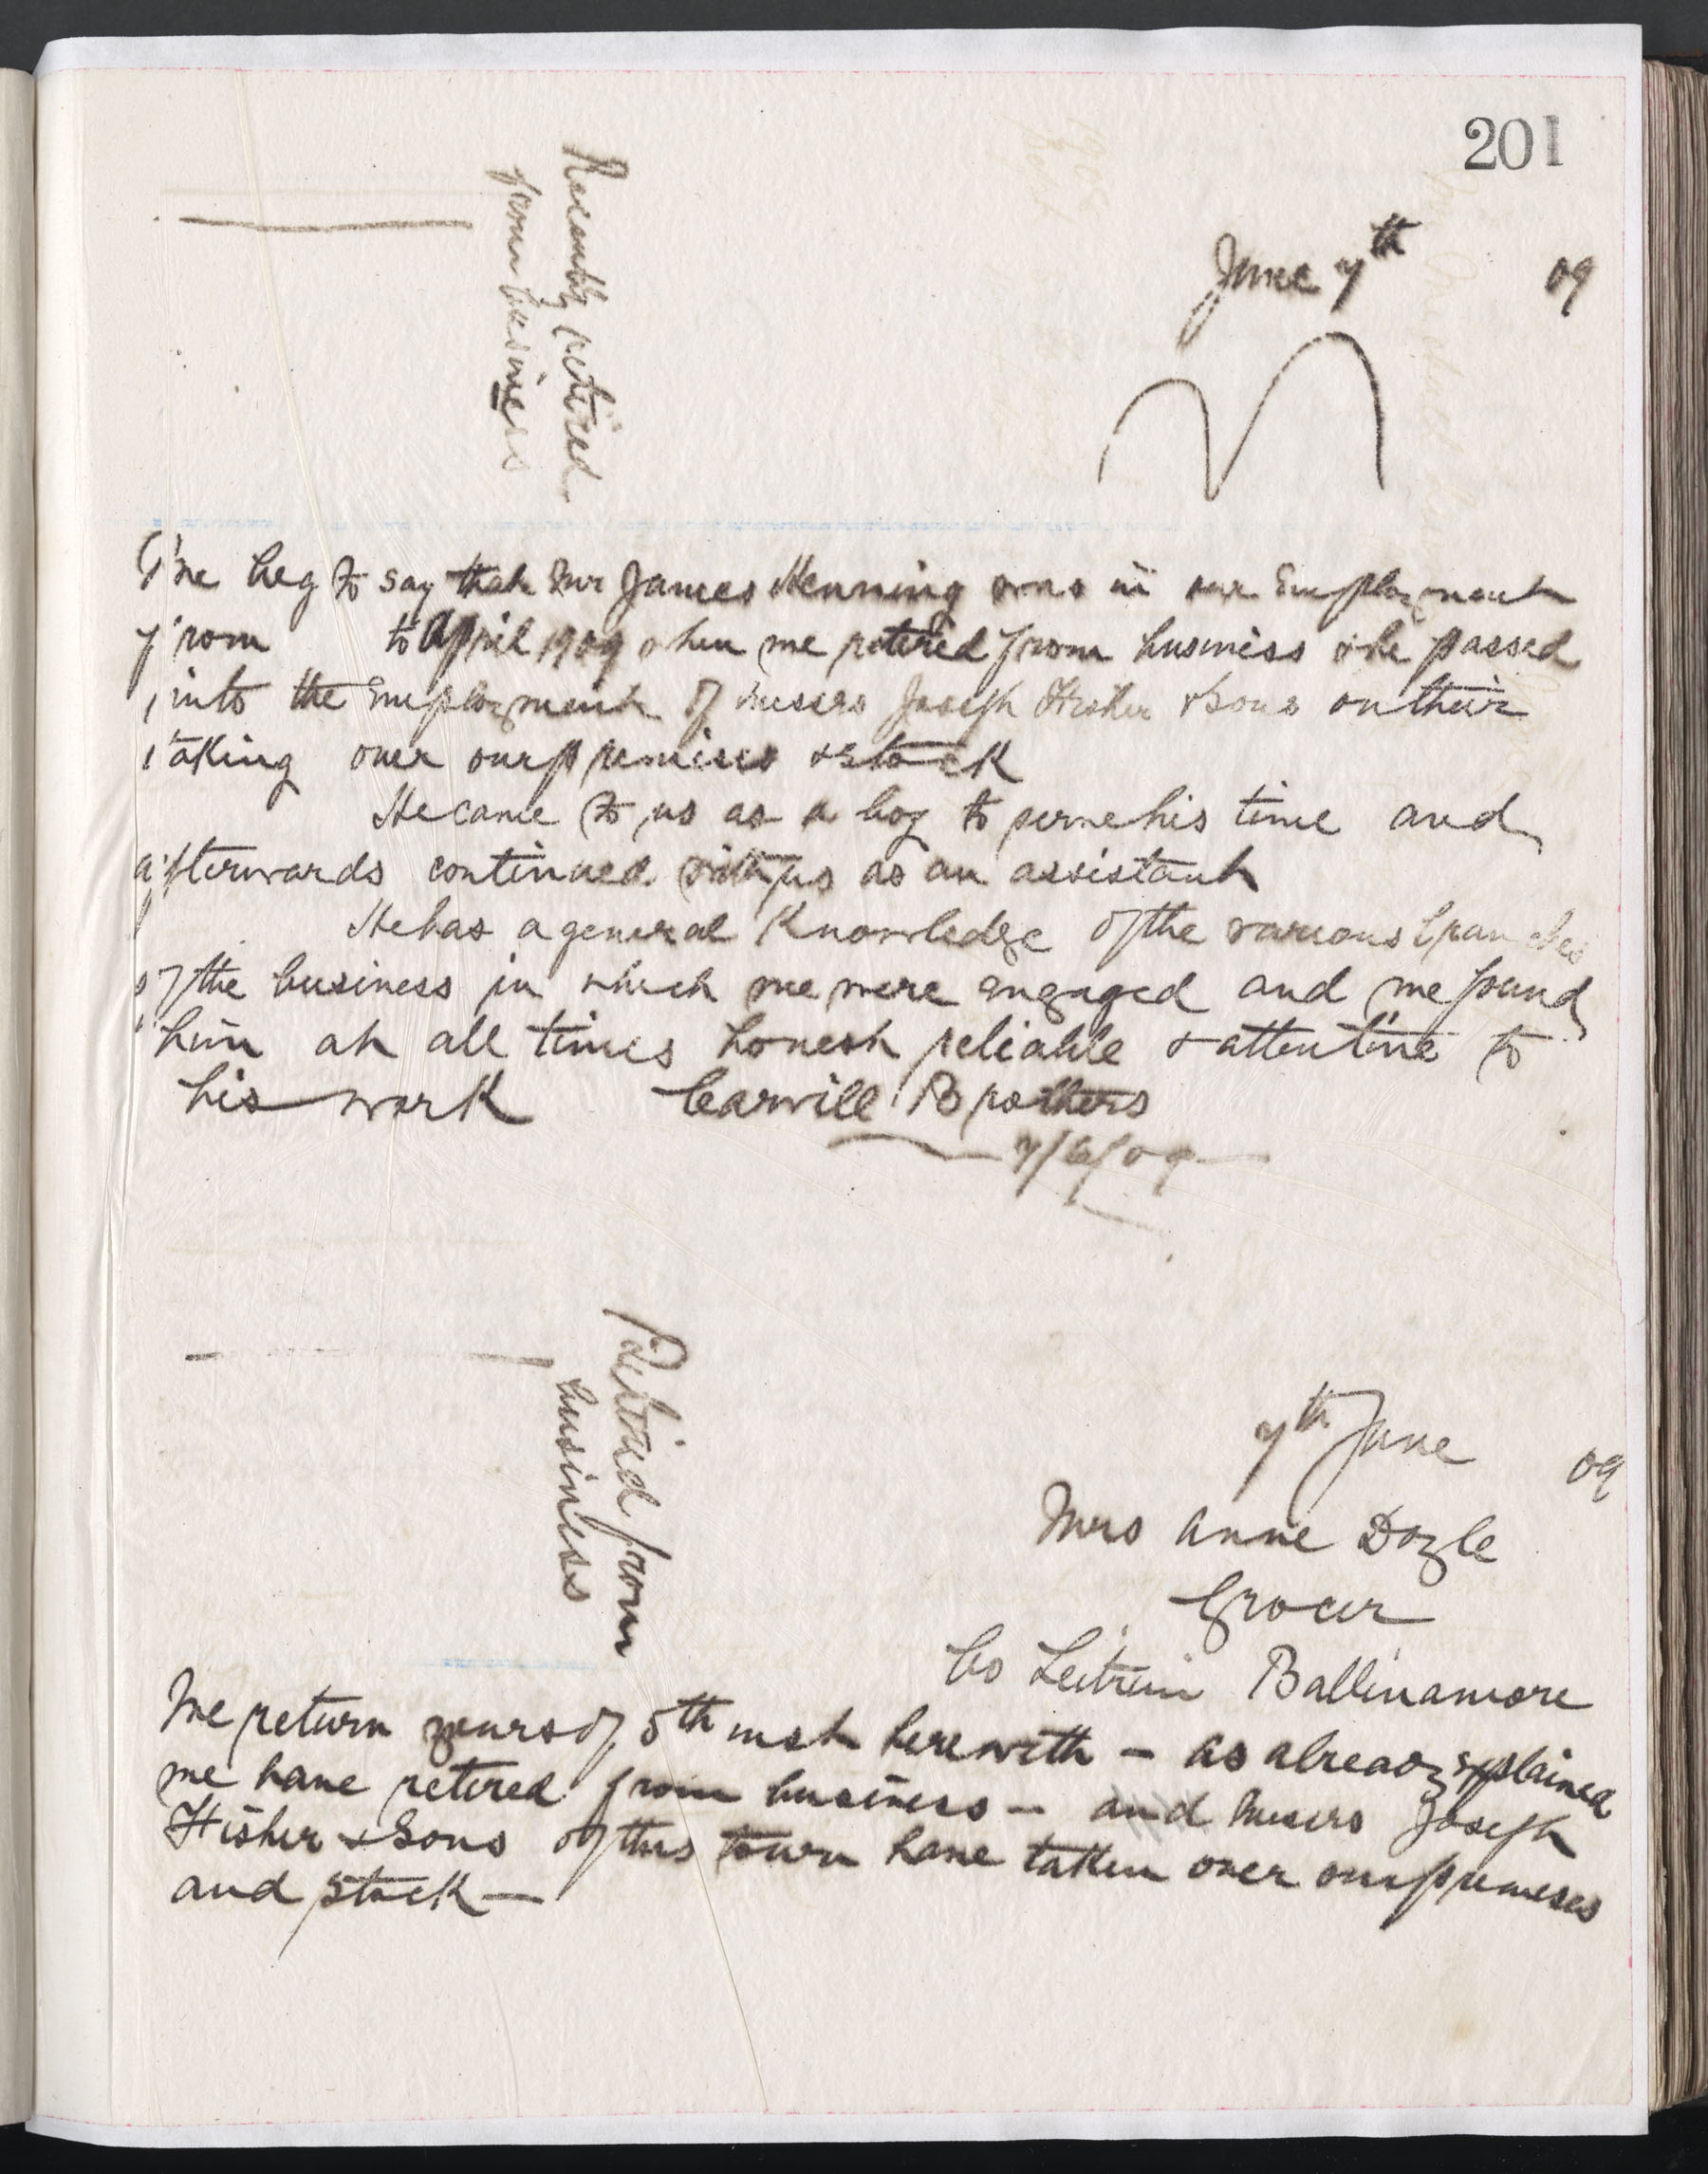 201
Recently retired
from business
June 7th 09
We beg to say that Mr James Henning was in our Employment
from to April 1909 when we retired from business & he passed
into the Employment of Messrs Joseph Fisher & Sons on their
taking over our premises & stock
He came to us as a boy to serve his time and
afterwards continued with us as an assistant
He has a general Knowledge of the various branches
of the business in which we were engaged and we found
him at all times honest reliable & attentive to
his work Carvill Brothers
7/6/09
Retired from
business
7th June 09
Mrs Anne Doyle
Grocer
Co Leitrim Ballinamore
We return yours of 5th inst herewith - as already explained
we have retired from business - and Messrs Joseph
Fisher & Sons of this town have taken over our premises
and stock -